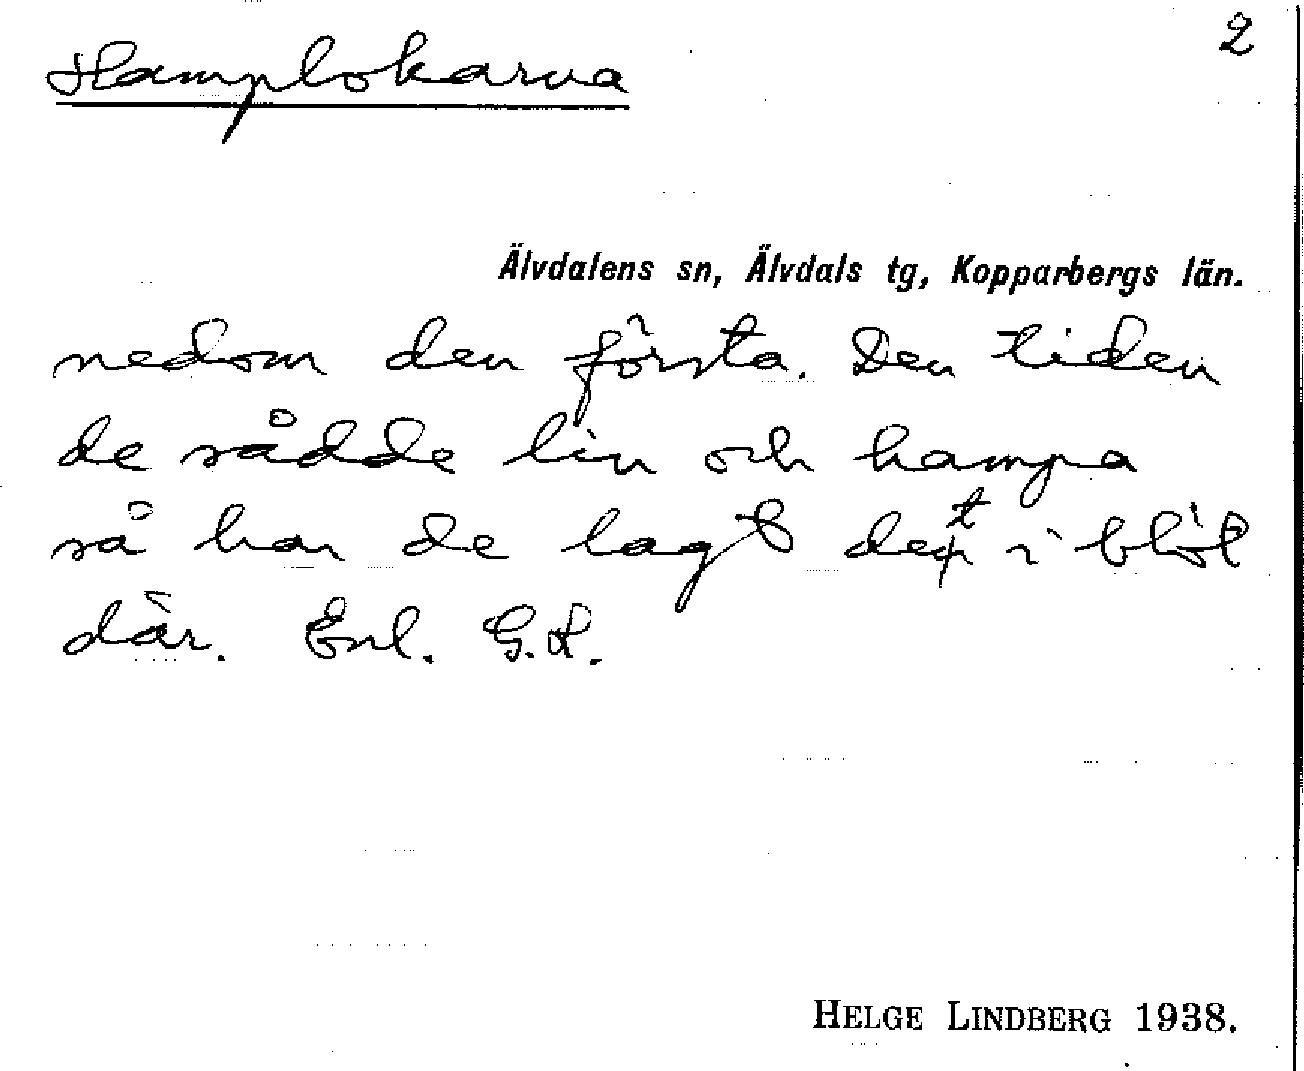 2
Hamplokarna
Älvdalens sn, Älvdals tg, Kopparbergs län.
nedom den första. Den tiden
de sådde lin och hampa
så har de lagt det i blöt
där. Enl. G.L.
HELGE LINDBERG 1938.